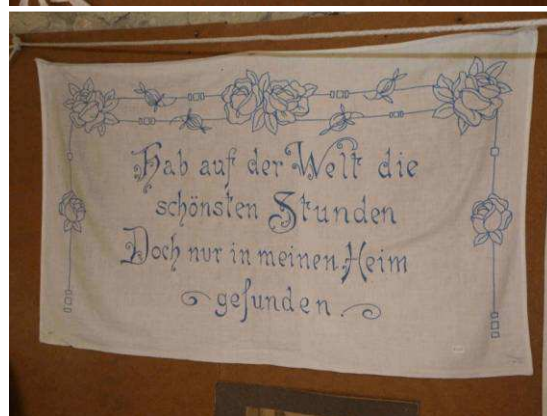 Hab auf der Welt die
schönsten Stunden
Doch nur in meinen Heim
gefunden.